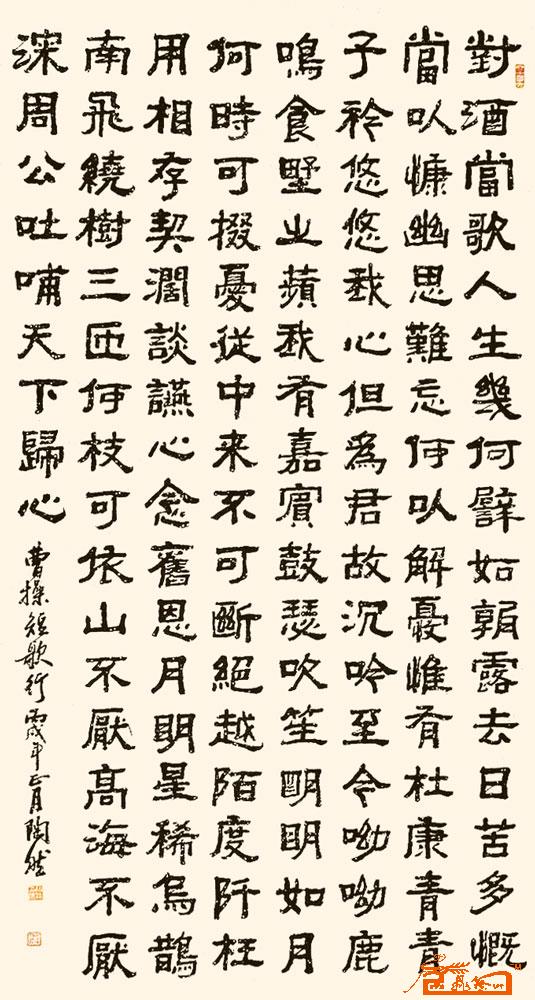 對酒當歌人生幾何譬如朝露去日苦多慨
當以慷幽思難忘何以解憂惟有杜康青青
子衿悠悠我心但爲君故沉吟至今呦呦鹿
鳴食野之蘋我有嘉賓鼓瑟吹笙明明如月
何時可掇憂從中来不可斷絕越陌度阡枉
用相存契濶談讌心念舊恩月明星稀烏鵲
南飛繞樹三匝何枝可依山不厭高海不厭
深周公吐哺天下歸心
曹操短歌行丙戌年正月陶然